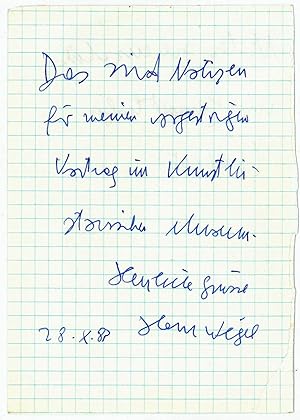 Das sind Notizen
für meinen vorgestrigen
Vortrag im Kunsthi-
storischen Museum.
Herzliche Grüsse
28. X. 88